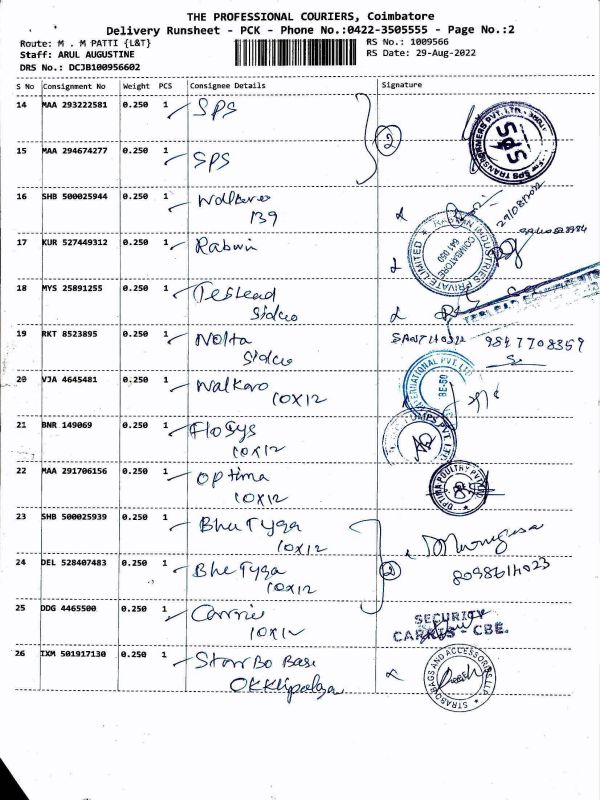 THE PROFESSIONAL COURIERS, Coimbatore
Delivery Runsheet - PCK - Phone No.:0422-3505555 - Page No.:2
Route: M . M PATTI {L&T}
RS No.: 1009566
Staff: ARUL AUGUSTINE
RS Date: 29-Aug-2022
DRS No.: DCJB100956602
S No Consignment No Weight PCS Consignee Details Signature
14 MAA 293222581 0.250 1 SPS
2
SPS TRANSFORMERS PVT. LTD.
15 MAA 294674277 0.250 1 SPS
16 SHB 500025944 0.250 1
139
29/08/2022
17 KUR 527449312 0.250 1 Rabwin
INDUSTRIES PRIVATE LIMITED
COIMBATORE
641 050
18 MYS 25891255 0.250 1 Teslead
Sidco
19 RKT 8523895 0.250 1 Nolta
Sidco
9847708359
20 VJA 4645481 0.250 1 Walkaro
10X12
INTERNATIONAL PVT. LTD
21 BNR 149069 0.250 1 Flosys
10X12
PVT. LTD.
22 MAA 291706156 0.250 1 Optima
10X12
OPTIMA POULTRY PVT LTD
23 SHB 500025939 0.250 1 Bhu Tyga
10X12
24 DEL 528407483 0.250 1 Bhe Tyga
10X12
2
25 DDG 4465500 0.250 1 Carrie
10X12
SECURITY
- CBE.
26 IXM 501917130 0.250 1
BAGS AND ACCESSORIES